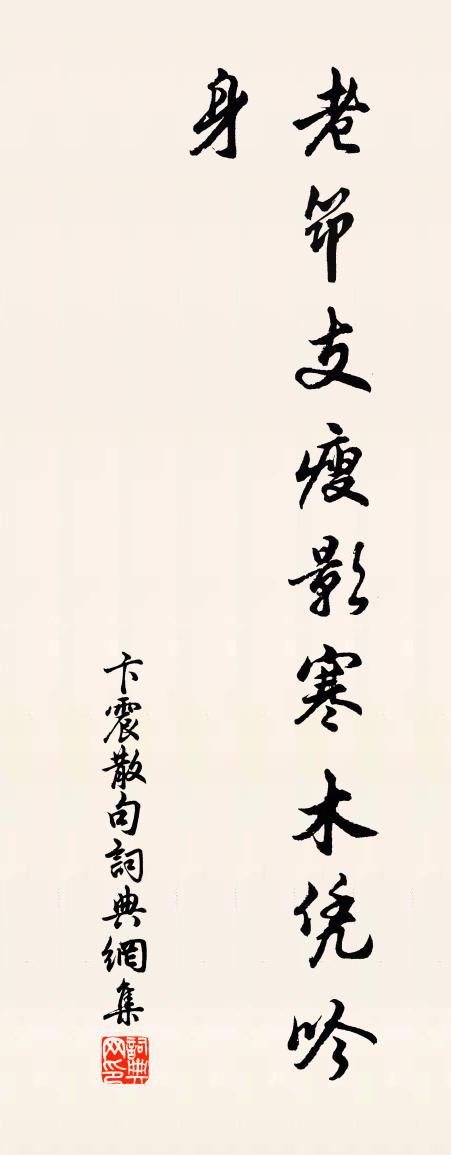 老筇支瘦影寒木凭吟
身
卞震散句詞典網集
詞典
网印